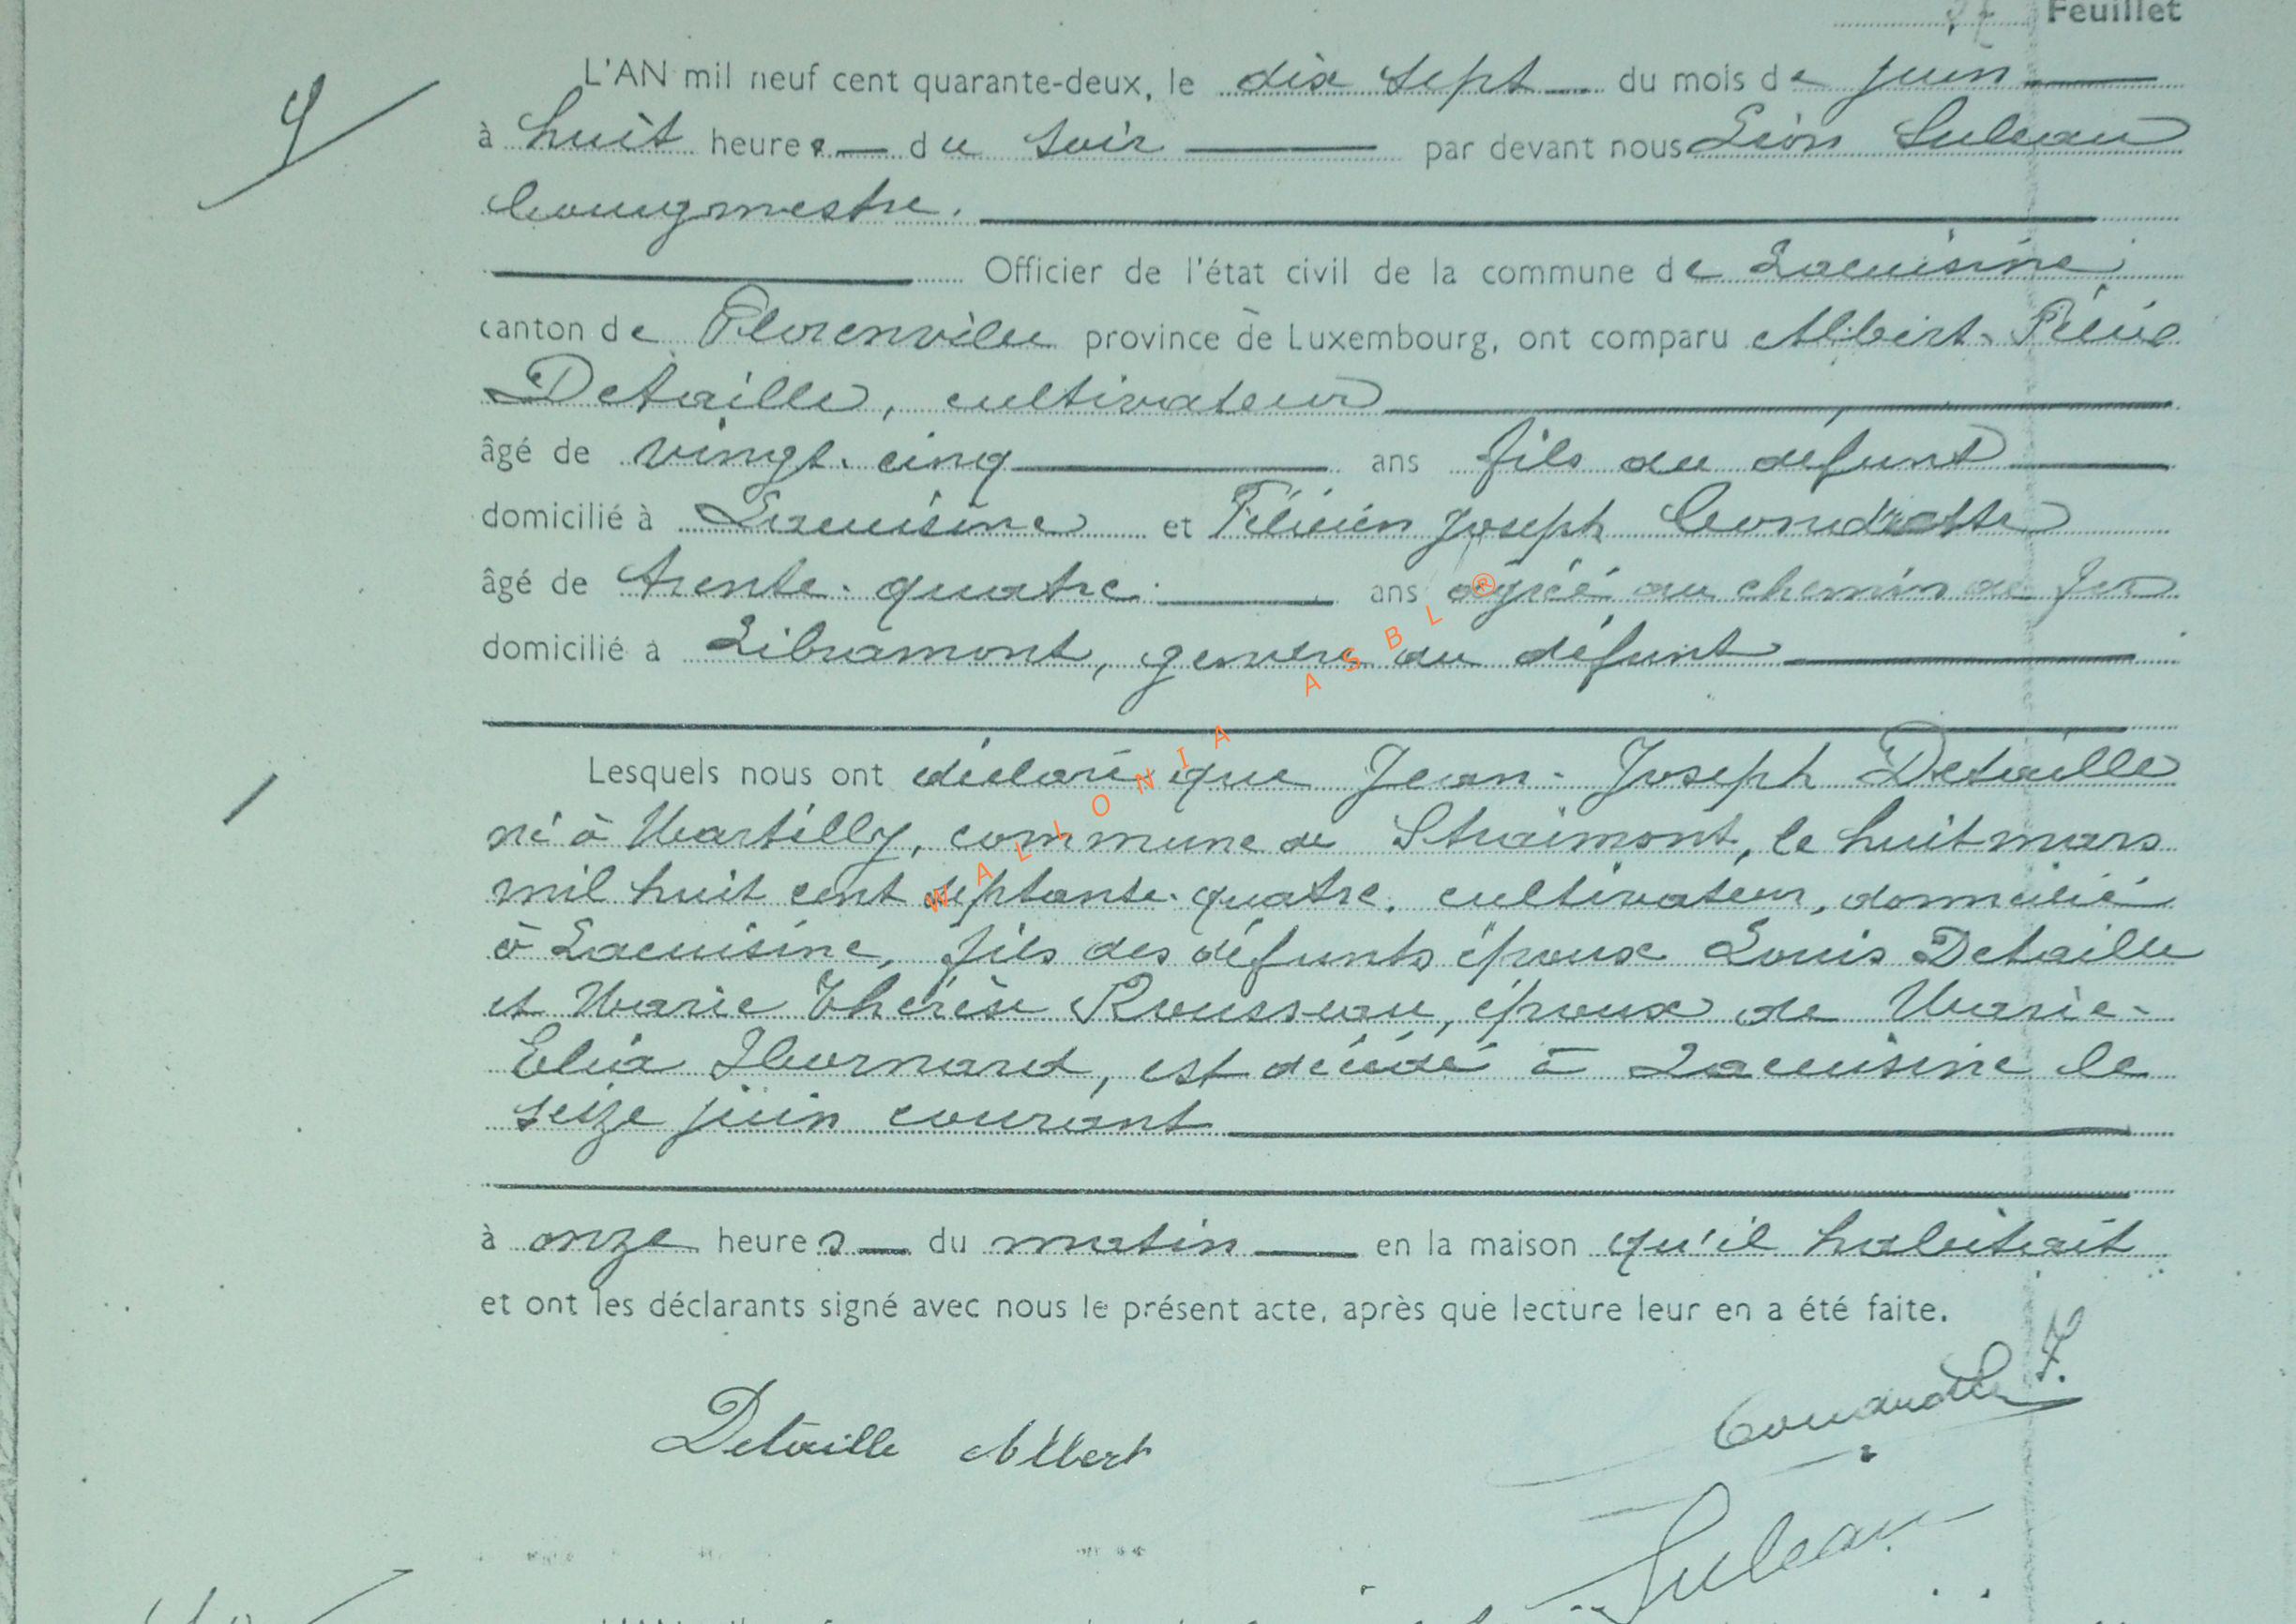 Feuillet
9
L'AN mil neuf cent quarante-deux, le dix sept du mois de juin
à huit heures du soir par devant nous Léon Suleau
bourgmestre.
Officier de l'état civil de la commune de Lacuisine
canton de Florenville province de Luxembourg, ont comparu Albert-Félix
Detaille, cultivateur
âgé de vingt-cinq ans fils du défunt
domicilié à Lacuisine et Félicien Joseph Condrotte
âgé de trente-quatre ans agréé au chemin de fer
domicilié à Libramont, gendre du défunt
Lesquels nous ont déclaré que Jean-Joseph Detaille
né à Martilly, commune de Straimont, le huit mars
mil huit cent septante-quatre, cultivateur, domicilié
à Lacuisine, fils des défunts époux Louis Detaille
et Marie Thérèse Rousseau, époux de Marie-
Elia, est décédé à Lacuisine le
seize juin courant
à onze heures du matin en la maison qu'il habitait
et ont les déclarants signé avec nous le présent acte, après que lecture leur en a été faite.
Condrotte F.
Detaille Albert
Suleau
WALLONIA ASBL ®